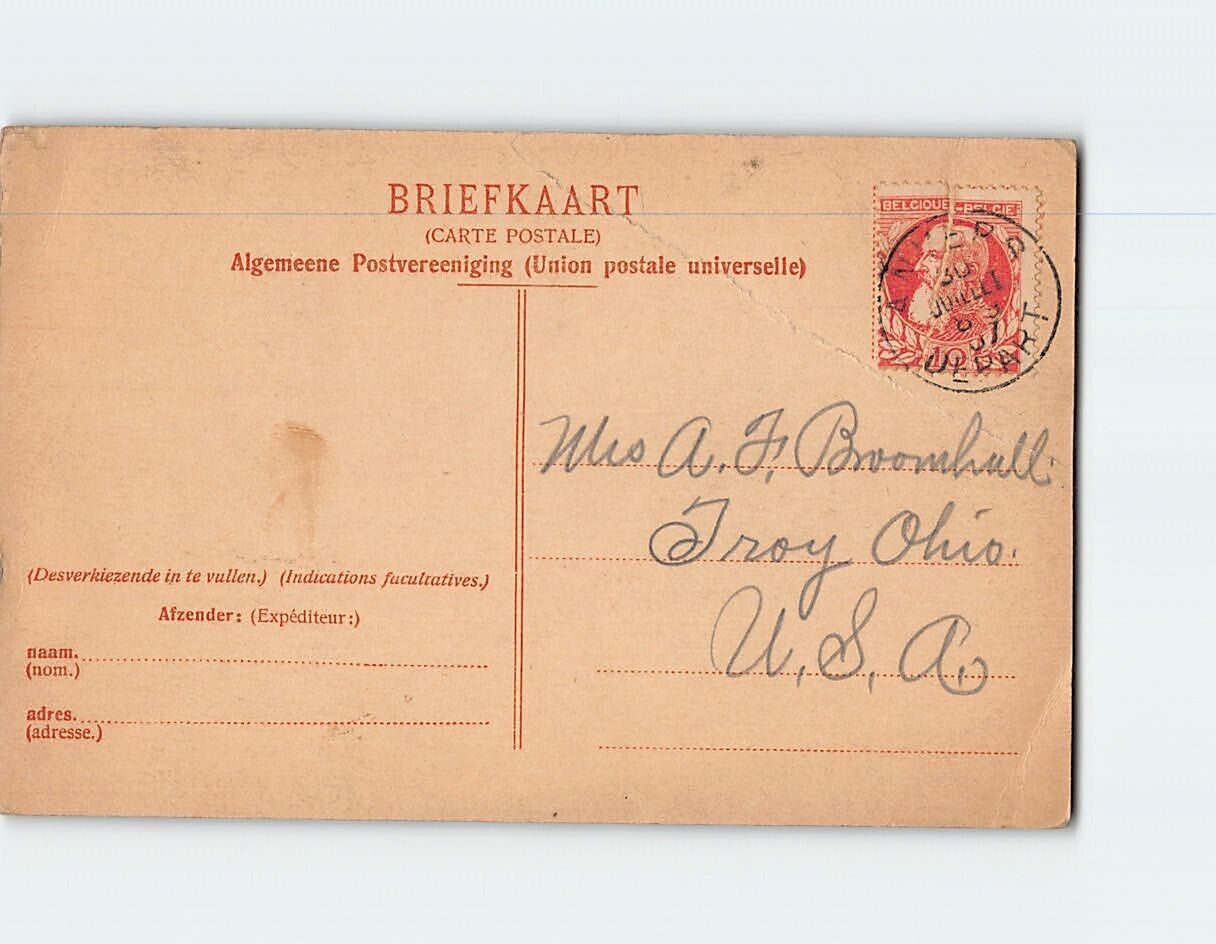 BRIEFKAART
(CARTE POSTALE)
Algemeene Postvereeniging (Union postale universelle)
BELGIQUE-BELGIË
ANVERS
30
JUILLET
07
DEPART
10
Mrs A. F. Broomhall.
Troy Ohio.
U. S. A.
(Desverkiezende in te vullen.) (Indications facultatives.)
Afzender: (Expéditeur:)
naam.
(nom.)
adres.
(adresse.)